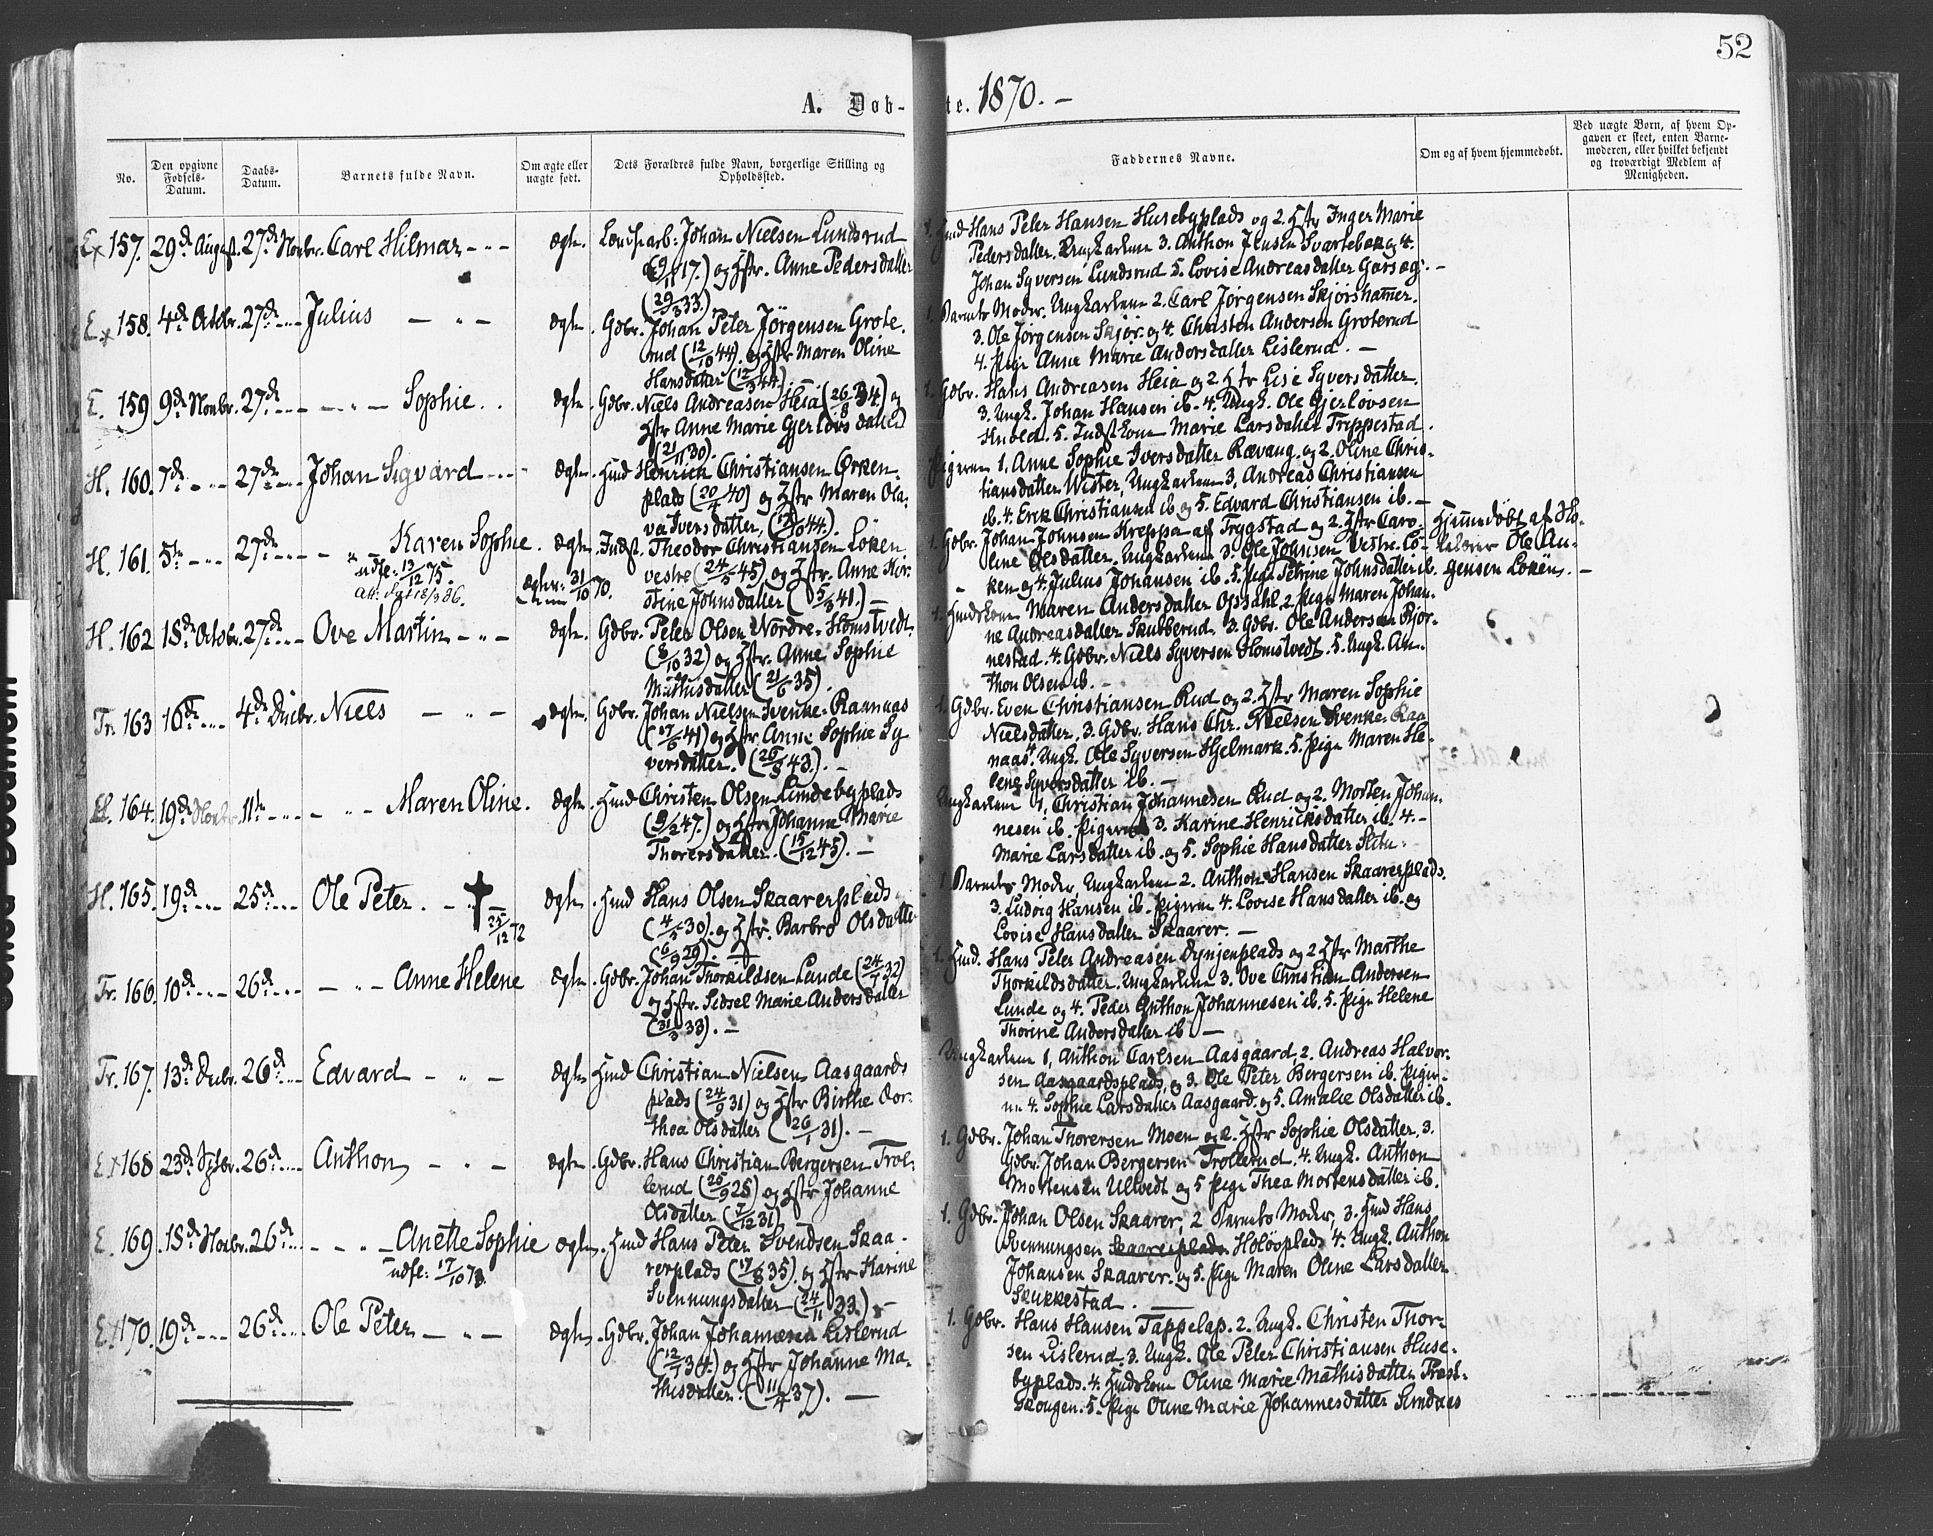 52
A. Døb- te. 1870. –
No.
Den opgivne Fødsels-Datum.
Daabs-Datum.
Barnets fulde Navn.
Om ægte eller uægte født.
Dets Forældres fulde Navn, borgerlige Stilling og Opholdssted.
Faddernes Navne.
Om og af hvem hjemmedøbt.
Ved uægte Børn, af hvem Opgaven er skeet, enten Barnemoderen, eller hvilket bekjendt og troværdigt Medlem af Menigheden.
157. 29de August. 27de Novbr. Carl Hilmar – " – ægte. Johan Nielsen Lundsrud
(9/11 17.) og Hstr. Anne Pedersdatter
(29/3 33.)
Hans Peter Hansen Husebyplads og 2. Hstr Inger Marie
Pedersdatter. Ungkarlene 3. Anthon Jensen Svartebæk og 4.
Johan Syversen Lundsrud 5. Lovise Andreasdatter
E. 158. 4de Octbr. 27de Julius – " – ægte. Gdbr. Johan Peter Jörgensen Grote-
rud (12/10 44). og Hstr Maren Oline
Hansdatter (12/3 44.)
1. Barnets Moder. Ungkarlene 2. Carl Jørgensen Skjørshamer.
3. Ole Jørgensen Skjør. og 4. Christen Andersen Groterud
4. Pige Anne Marie Andersdatter Lislerud. –
E. 159 9de Novbr. 27de – " – Sophie. ægte. Gdbr. Niels Andreasen Heia (26/8 34.) og
Hstr Anne Marie Gjerløvsdatter
(21/11 30).
1. Gdbr. Hans Andreasen Heia og 2 Hstr Lise Syversdatter.
3. Ungk. Johan Hansen ib. 4. Ungk. Ole Gjerløvsen
5. Marie Larsdatter Trippestad.
H. 160. 7de 27de Johan Sigvard ægte. Hmd Henrich Christiansen Ørken-
plads (20/4 40) og Hstr Maren Ola-
va Iversdatter, (44).
Pigerne 1. Anne Sophie Iversdatter Rævaug. og 2. Oline Chris-
tiansdatter Wister, Ungkarlene 3. Andreas Christiansen
ib. 4. Erik Christiansen ib og 5. Edvard Christiansen ib. –
H. 161. 5te 27de – " – Karen Sophie. ægte. Indst. Theodor Christiansen Løken
vestre (24/5 45) og Hstr. Anne Kir-
stine Johnsdatter (5/3 41.) –
udfl. 13/12 75.
31/10 70.
1. Gdbr. Johan Johnsen Kreppa af Trygstad og 2. Hstr Caro-
line Olsdatter. Ungkarlene 3. Ole Johnsen Vestre-Lø-
ken og 4. Julius Johansen ib. 5. Pige Petrine Johnsdatter ib.
Hjemmedøbt af Sko-
lelærer Ole Au-
gensen Løken. –
H. 162 18de Octbr. 27de Ove Martin – " – ægte. Gdbr. Peter Olsen Nordre-Homstvedt.
(8/10 32) og Hstr. Anne Sophie
Mathisdatter (21/6 35).
1. Maren Andersdatter Opsahl. 2. Pige Maren Johan-
ne Andreasdatter Skubberud. 3. Gdbr. Ole Andersen Bjør-
nestad. 4. Gdbr. Niels Syversen Homstvedt. 5. Ungk. An-
thon Olsen ib. –
Tr. 163 16de 4de Decbr. Niels – " – ægte. Gdbr. Johan Nielsen Svenke-Raanaas
(17/6 41) og Hstr. Anne Sophie Sy-
versdatter. (26/8 43.). –
1. Gdbr. Even Christiansen Rud og 2. Hstr Maren Sophie
Nielsdatter, 3. Gdbr. Hans Chr. Nielsen Svenke-Raa-
naas. Ungk. Ole Syversen Hjelmark. 5. Pige Maren He-
lene Syversdatter ib. –
164. 19de Novbr. 11te – " – Maren Oline. ægte. Hmd Christen Olsen Lundebyplads
(9/2 47.) og Hstr Johanne Marie
Thorersdatter. (15/12 45). –
Ungkarlene 1. Christian Johannesen Rud og 2. Morten Johan-
nesen ib. Pigerne 3. Karine Henriksdatter ib. 4. –
Marie Larsdatter ib. og 5. Sophie Hansdatter
H. 165. 19de 25de Ole Peter. – † 25/12 72 ægte. Hmd Hans Olsen Skaarerplads.
(4/5 30). og Hstr. Barbro Olsdatter
(6/9 29).
1 Barnets Moder, Ungkarlene 2. Anthon Hansen Skaarerplads.
3. Ludvig Hansen ib. Pigerne 4. Lovise Hansdatter ib. og
Lovise Hansdatter Skaarer. –
Tr. 166. 10de 26de – " – Anne Helene ægte. Gdbr. Johan Thorkildsen Lunde (24/7 32)
og Hstr. Sidsel Marie Andersdatter
(31/3 33). –
1. Hmd. Hans Peter Andreasen Dynjenplads og 2 Hstr Marthe
Thorkildsdatter. Ungkarlene 3. Ove Christian Andersen
Lunde og 4. Peder Anthon Johannesen ib. 5. Pige Helene
Thorine Andersdatter ib. –
Tr. 167. 13de Decbr. 26de Edvard – " – ægte Hmd Christian Nielsen Aasgaards
plads (24/9 31) og Hstr Birthe Dor-
thea Olsdatter (26/1 31). –
Ungkarlene 1. Anthon Carlsen Aasgaard, 2. Andreas Halvor-
sen Aasgaardsplads, og 3. Ole Peter Bergersen ib. Piger-
ne 4. Sophie Larsdatter Aasgaard. og 5. Amalie Olsdatter ib.
168 23de 26de Anthon, – " – ægte Gdbr. Hans Christian Bergersen Trol-
lerud (25/9 28) og Hstr Johanne
Olsdatter (7/12 31)
1. Gdbr. Johan Thorersen Moen og 2. Hstr Sophie Olsdatter, 3.
Gdbr. Johan Bergersen Trollerud. 4. Ungk. Anthon
Mortensen Ullvedt og 5 Pige Thea Mortensdatter ib.
E. 169. 18de Novbr. 26de – " – Anette Sophie ægte. Hmd Hans Peter Svendsen Skaa-
rerplads (17/8 35). og Hstr Karine
Svennungsdatter (24/11 33.) –
udfl: 17/10 78.
1. Gdbr. Johan Olsen Skaarer, 2 Barnets Moder, 3. Hmd Hans
Svennungsen Skaarerplads Holøsplads 4. Ungk. Anthon
Johansen Skaarer. og 5. Pige Maren Oline Larsdatter
Skukkestad. –
170. 19de 26de Ole Peter – " – ægte. Gdbr. Johan Johannesen Lislerud
(12/7 34.) og Hstr Johanne Ma-
thisdatter. (11/4 37). –
1. Gdbr. Hans Hansen Tappelap. 2. Ungk. Christen Thor-
sen Lislerud. 3. Ungk. Ole Peter Christiansen Huse-
byplads. 4. Oline Marie Mathisdatter Præst-
skougen. 5. Pige Oline Marie Johannesdatter